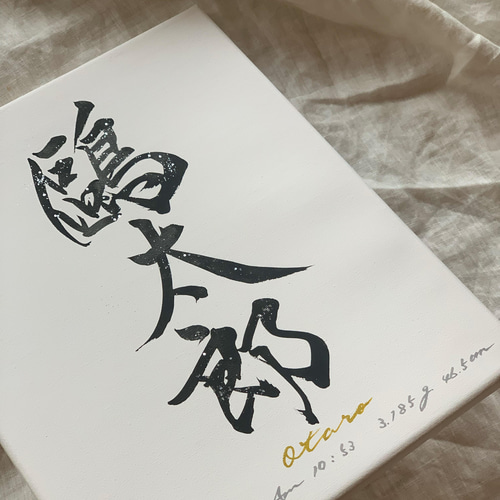 鴎太郎
Otaro
Am 10:53 3.185g 46.5cm